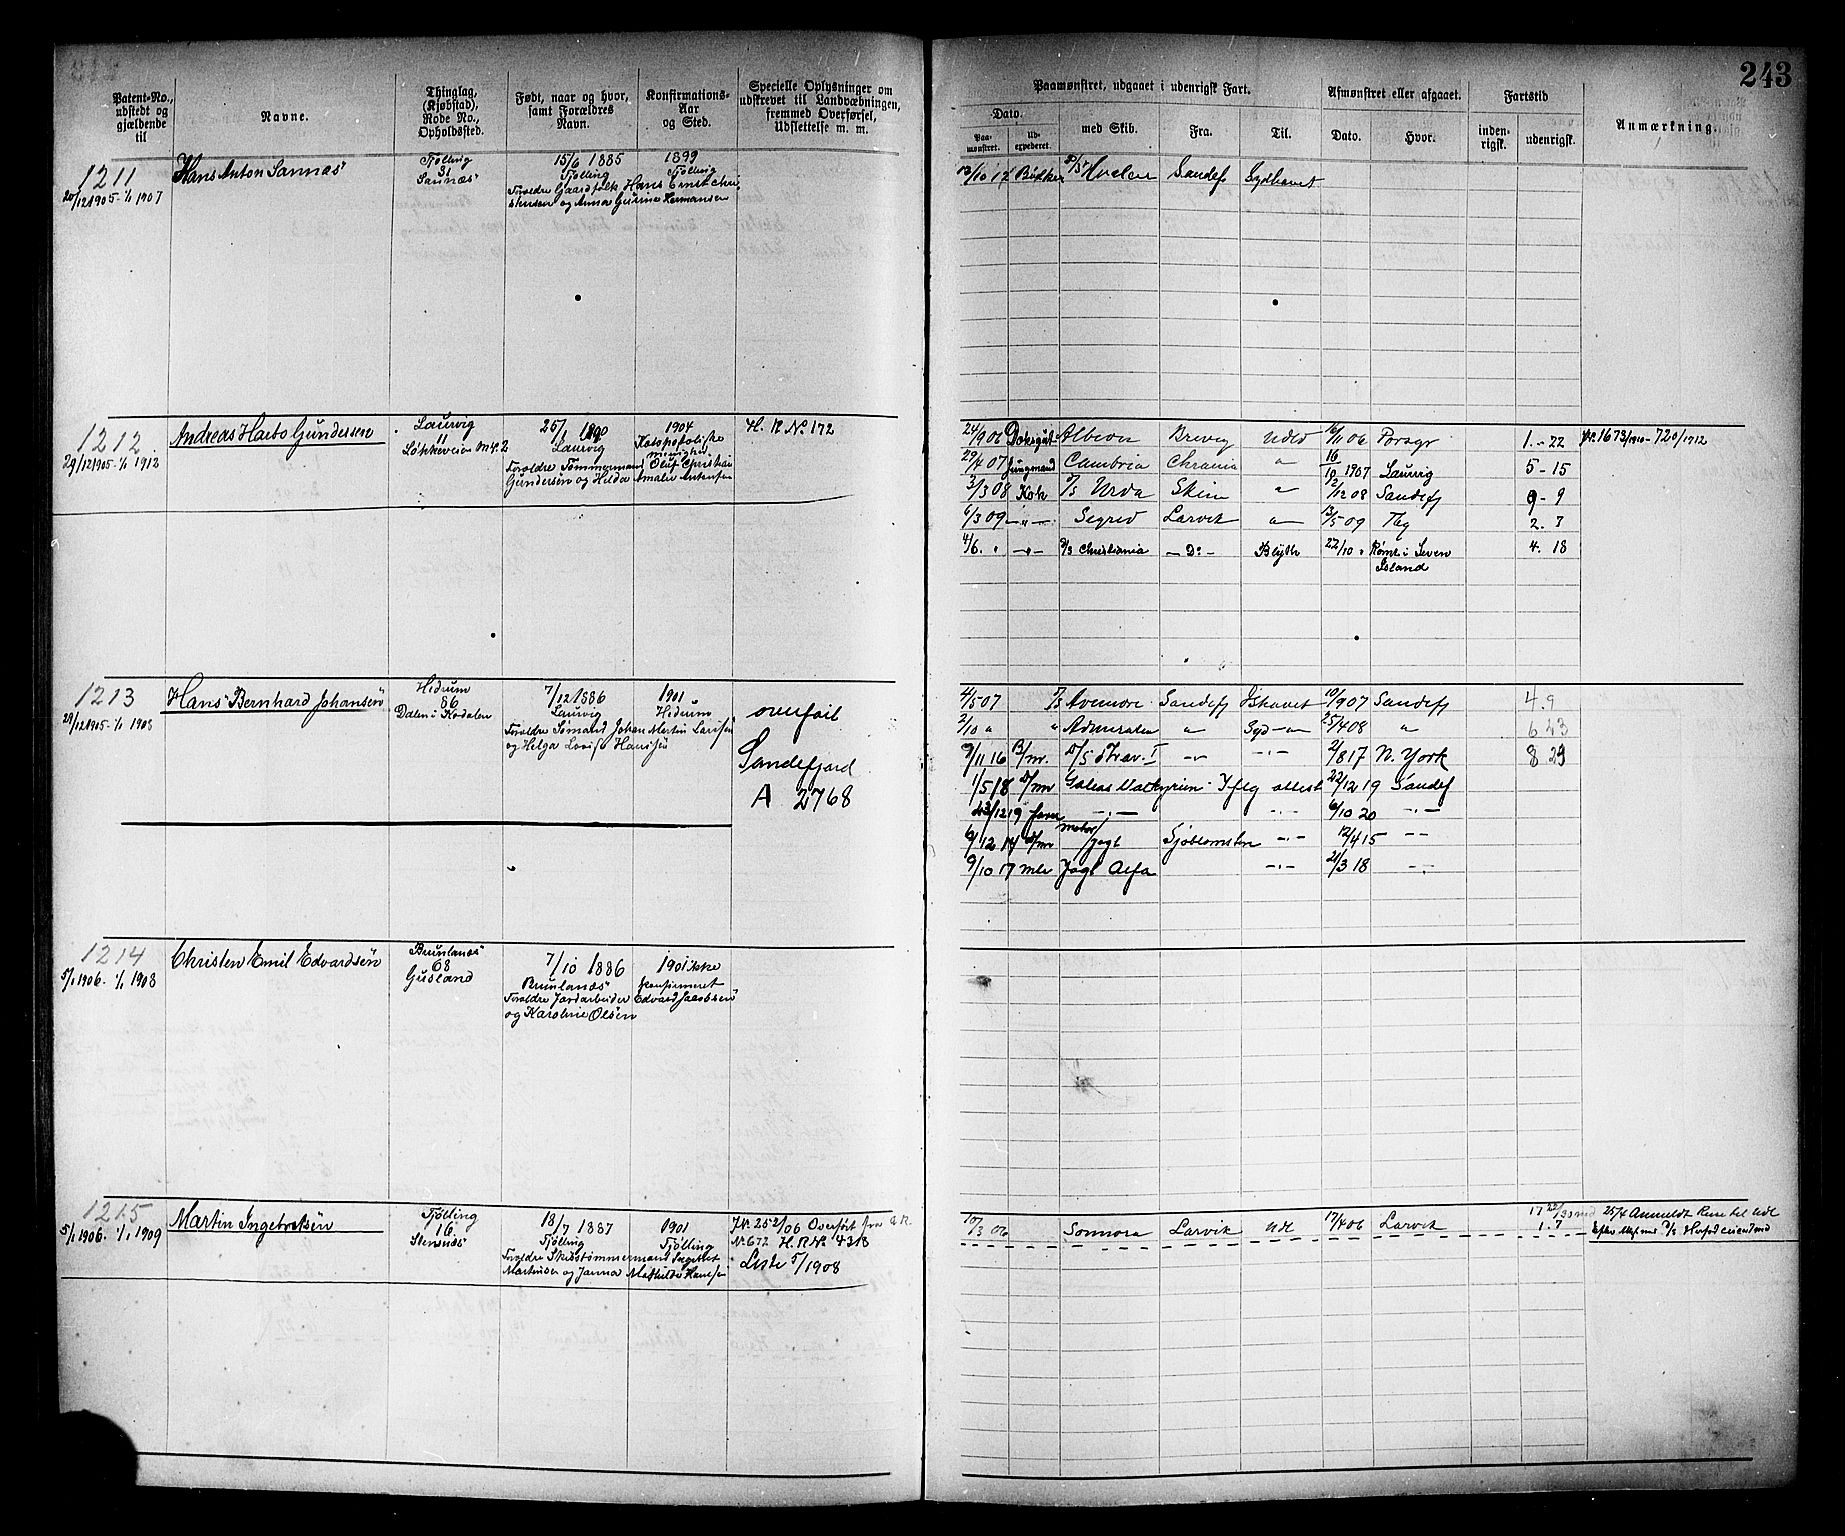 243
Patent-No., udstedt og gjældende til
Navne.
Thinglag, (Kjøbstad), Rode No., Opholdssted.
Født, naar og hvor, samt Forældres Navn.
Konfirmations- Aar og Sted.
Specielle Oplysninger om udskrevet til Landværbningen, fremmed Overførsel, Udslettelse m. m.
Paamønstret, udgaaet i udenrigsk Fart.
Dato.
Paa- mønstret.
Ud- expederet.
med Skib.
Fra.
Til.
Afmønstret eller afgaaet.
Dato.
Hvor.
Fartstid
inden- rigsk.
udenrigsk.
Anmærkning.
1211
20/12 1905 - 1/1 1907
Hans Anton Sannæs
Tjølling
31
Sannæs
15/6 1885
Tjølling
1899
Tjølling
Forældre Gaardfolk Hans Ernst Chri
stensen og Anna Gurine Hermansen
10/10 17 Bødker Hvalen Sandef Sydhavet
1212
29/12 1905 - 1/1 1912
Andreas Haebo Gundersen
Laurvig
11
Løkkeveien No. 2
25/1 1890
Laurvig
1904
Katapostoliske
Menighet
Forældre Tømmermand Oluf Christian
Gundersen og Hilda Amalie Antonsen
H. R No. 172
24/9 06 Doksgut Albion Brevig Udld 6/11 06 Porsgr 1.-22
No. 1673/1910 - 720/1912
29/4 07 Jungmand Cambria Chrania " 16/10 1907 Laurvig 5-15
3/3 08 Kok S/S Urda Skien " 12/12 08 Sandefj 9-9
6/3 09 -"- Sigrid Larvik " 13/5 09 Tbg 2.7
4/6 " -"- S/S Christiania -Do- Blyth 22/10 " Rømt i Seven
Island 4. 18
1213
29/12 1905 - 1/1 1908
Hans Bernhard Johansen
Hedrum
86
Dalen i Kodalen
7/12 1886
Laurvig
1901
Hedrum
Forældre Sømand Johan Martin Larsen
og Helga Lovise Hansen
overført
Sandefjord
A 2768
4/5 07 S/S Avenore Sandefj Ishavet 10/9 07 Sandefj 4 9
2/10 " " Admiralen " Syd-" 25/4 08 " 6 23
9/11 16 B/m. D/S Thor I -"- -"- 2/8 17 N. York 8 29
1/5 18 Galeas Valkyrien 22/12 19 Sandef
23/12 19 -"- -"- 6/10 20 -"-
6/12 14 Motor/Jagt Sjøblomsten -"- 12/4 15 -"-
9/10 17 Jagt Alfa -"- 21/3 18 -"-
1214
5/1 1906 - 1/1 1908
Christen Emil Edvardsen
Brunlanæs
68
Gusland
7/10 1886
Brunlanæs
1901 ikke
konfirmeret
Forældre Jordarbeider Edvard Jacobsen
og Karoline Olsen
1215
5/1 1906 - 1/1 1909
Martin Ingebretsen
Tjølling
16
Stensnæs
18/7 1887
Tjølling
1901
Tjølling
Forældre Skibstømmermand Ingebret
Martinsen og Janna Mathilde Hansen
J.No. 252/06 Overført fra A.R.
No. 672 H. R No. 4318
Liste 5/1908
10/3 06 Sonnora Larvik Udl 17/4 06 Larvik 1.7
25/4 Anmeldt Reise til Udl